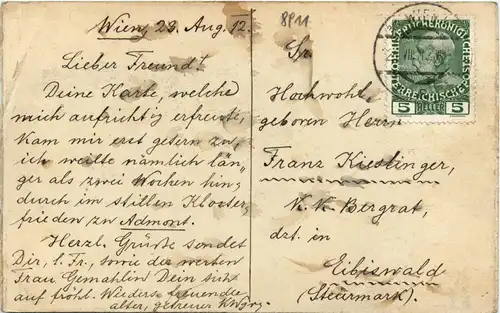 Wien, 23. Aug. 12.
Lieber Freund!
Deine Karte, welche
mich aufrichtig erfreute,
kam mir erst gestern zu,
ich weilte nämlich län-
ger als zwei Wochen hin-
durch im stillen Kloster-
frieden zu Admont.
Herzl. Grüße sendet
Dir, l. Fr., sowie der werten
Frau Gemahlin Dein sich
auf fröhl. Wieders. freuender
alter, getreuer
8911
Sr.
Hochwohl-
geboren Herrn
Franz Kieslinger,
K. K. Bergrat,
dzt. in
Eibiswald
(Steiermark).
WIEN
5 HELLER 5